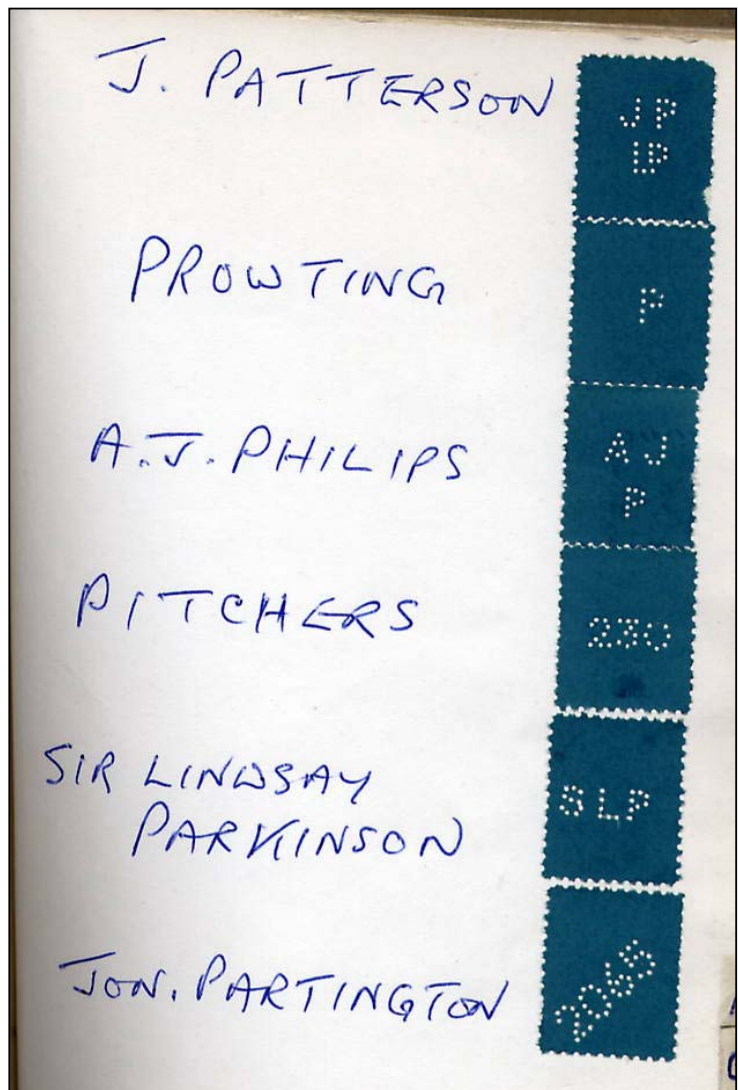 J. PATTERSON
JP
LP
PROWTING
P
A.J. PHILIPS
AJ
P
PITCHERS
230
SIR LINDSAY
PARKINSON
SLP
JON. PARTINGTON
2065